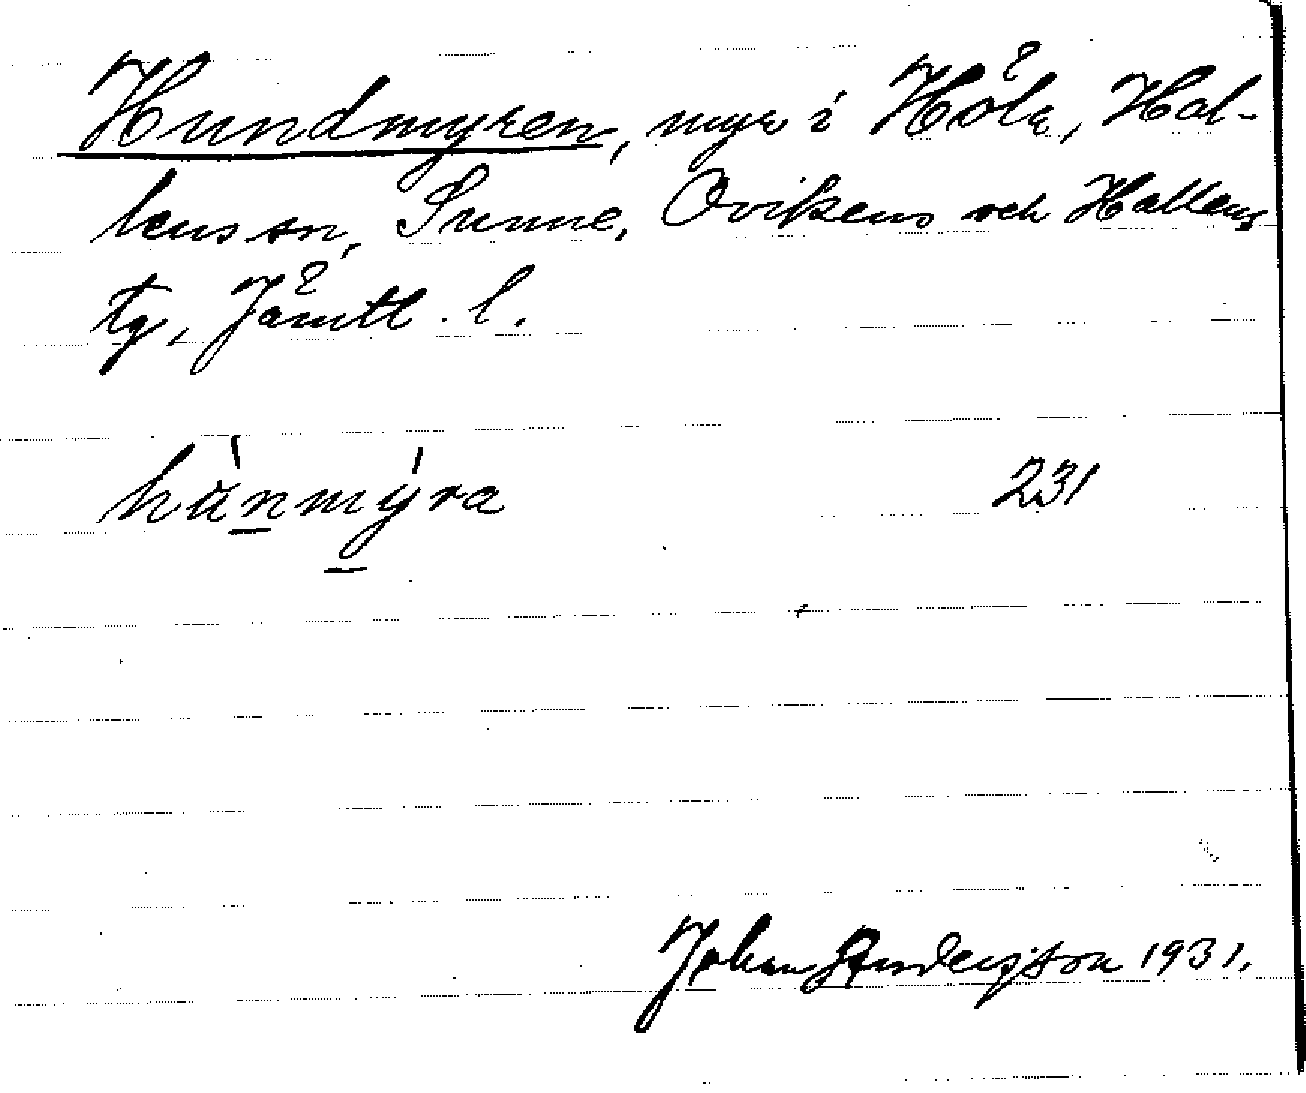 Hundmyren, myr i Höle, Hal-
lens sn, Sunne, Ovikens och Hallens
tg, Jämtl. l.
hùnmýra 231
Johan Andersson 1931.